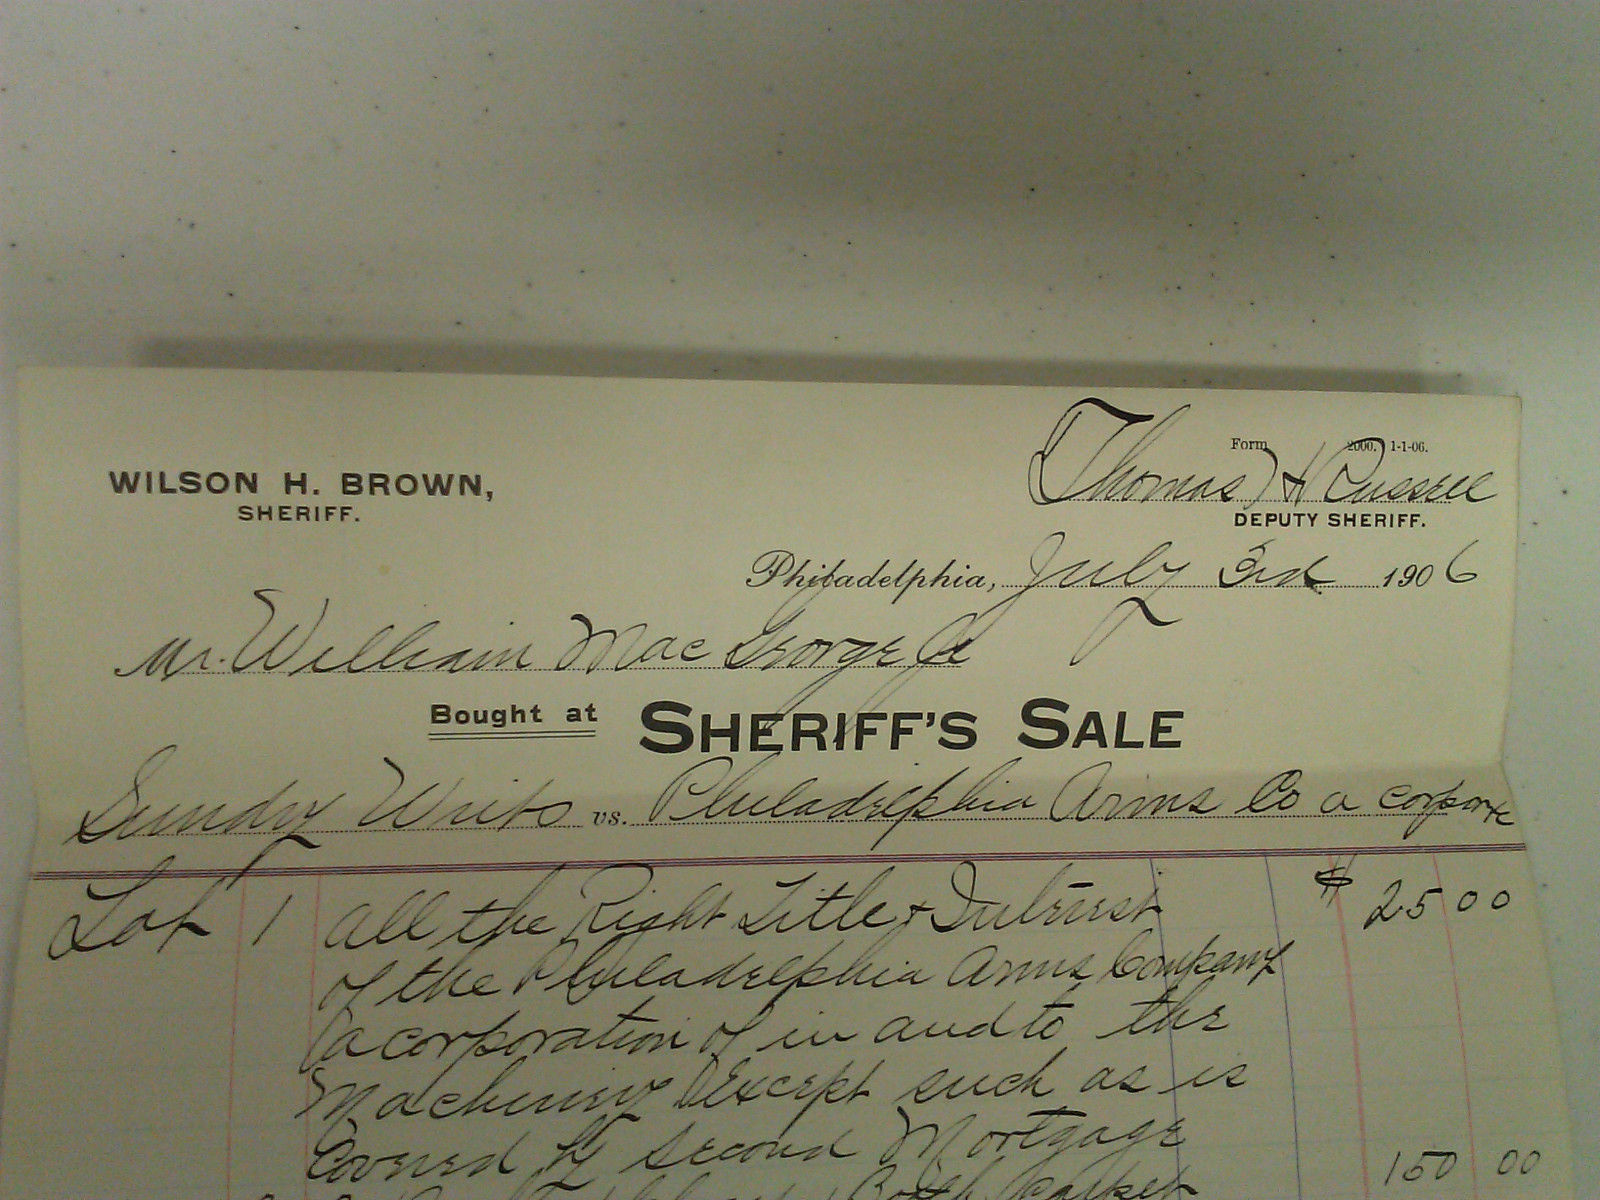 Form 2000. 1-1-06.
WILSON H. BROWN,
SHERIFF.
Thomas H Russell
DEPUTY SHERIFF.
Philadelphia, July 3rd 1906
Mr. William Mac George Jr
Bought at SHERIFF'S SALE
Sundry Writs vs. Philadelphia Arms Co a corporate
Lot 1 All the Right Title & Interest $ 25 00
of the Philadelphia Arms Company
(a corporation of in and to the
Machinery Except such as is
Covered by second Mortgage
150 00